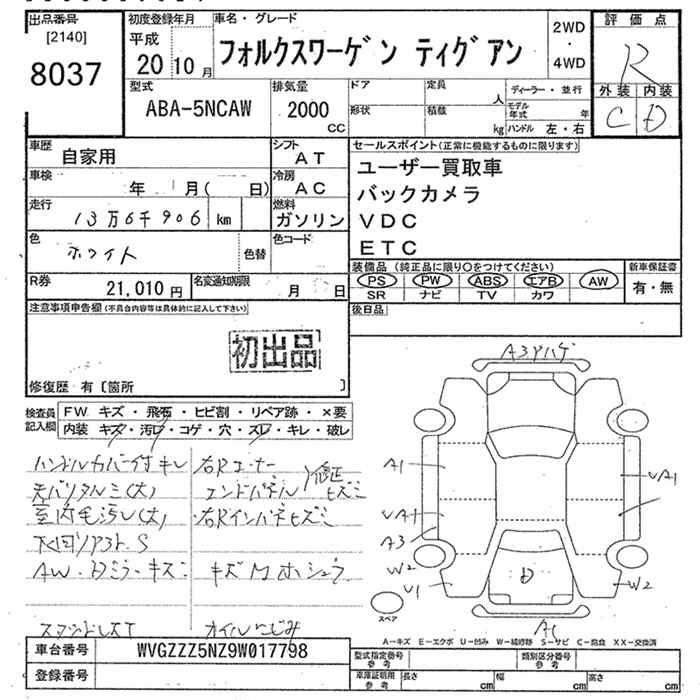 出品番号
[2140]
8037
初度登録年月
平成
20 10 月
車名・グレード
フォルクスワーゲン ティグアン
2WD
・
4WD
評価点
R
外装 内装
C D
型式
ABA-5NCAW
排気量
2000
CC
ドア
形状
定員
人
積載
kg
ディーラー・並行
モデル年式 年
ハンドル 左・右
車歴
自家用
シフト
AT
車検
年 月( 日)
冷房
AC
走行
13万6千906 km
燃料
ガソリン
色
ホワイト
色替
色コード
R券
21,010 円
名変通知期限
月 日
セールスポイント(正常に機能するものに限ります)
ユーザー買取車
バックカメラ
VDC
ETC
装備品(純正品に限り○をつけてください)
PS PW ABS エアB AW
SR ナビ TV カワ
新車保証書
有・無
後日品
注意事項申告欄(不具合内容等は具体的に記入して下さい)
初出品
修復歴 有〔箇所 〕
検査員記入欄
FW キズ・飛石・ヒビ割・リペア跡・×要
内装 キズ・汚レ・コゲ・穴・スレ・キレ・破レ
ハンドルカバー付キレ
室内毛汚レ(大)
下回リサビ.S
AW・Dミラーキズ
スタッドレスT
右Rコーナー
エンドパネル 修正ヒズミ
右Rインパネヒズミ
オイルにじみ
A3アハゲ
A1
UA1
UA1
A3
W2
U1
W2
D
A1
スペア
A-キズ E-エクボ U-凹み W-補修跡 S-サビ C-腐食 XX-交換済
車台番号
WVGZZZ5NZ9W017798
登録番号
型式指定番号
参考
類別区分番号
参考
車庫証明用
参考
長さ cm
幅 cm
高さ cm